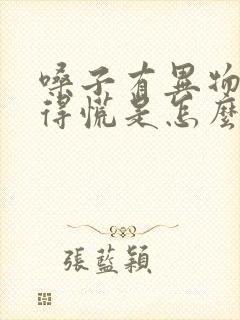 嗓子有異物
得慌是怎麼
張藍穎